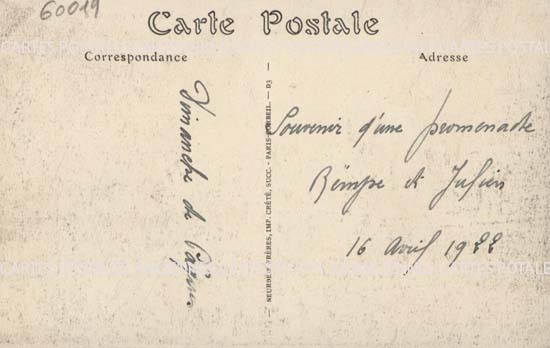 60019
Carte Postale
Correspondance
Adresse
Dimanche de Pâques
NEURDEIN FRÈRES, IMP. CRÉTÉ, SUCC. - PARIS-CORBEIL. - D3
Souvenir d'une promenade
et Julien
16 Avril 1922